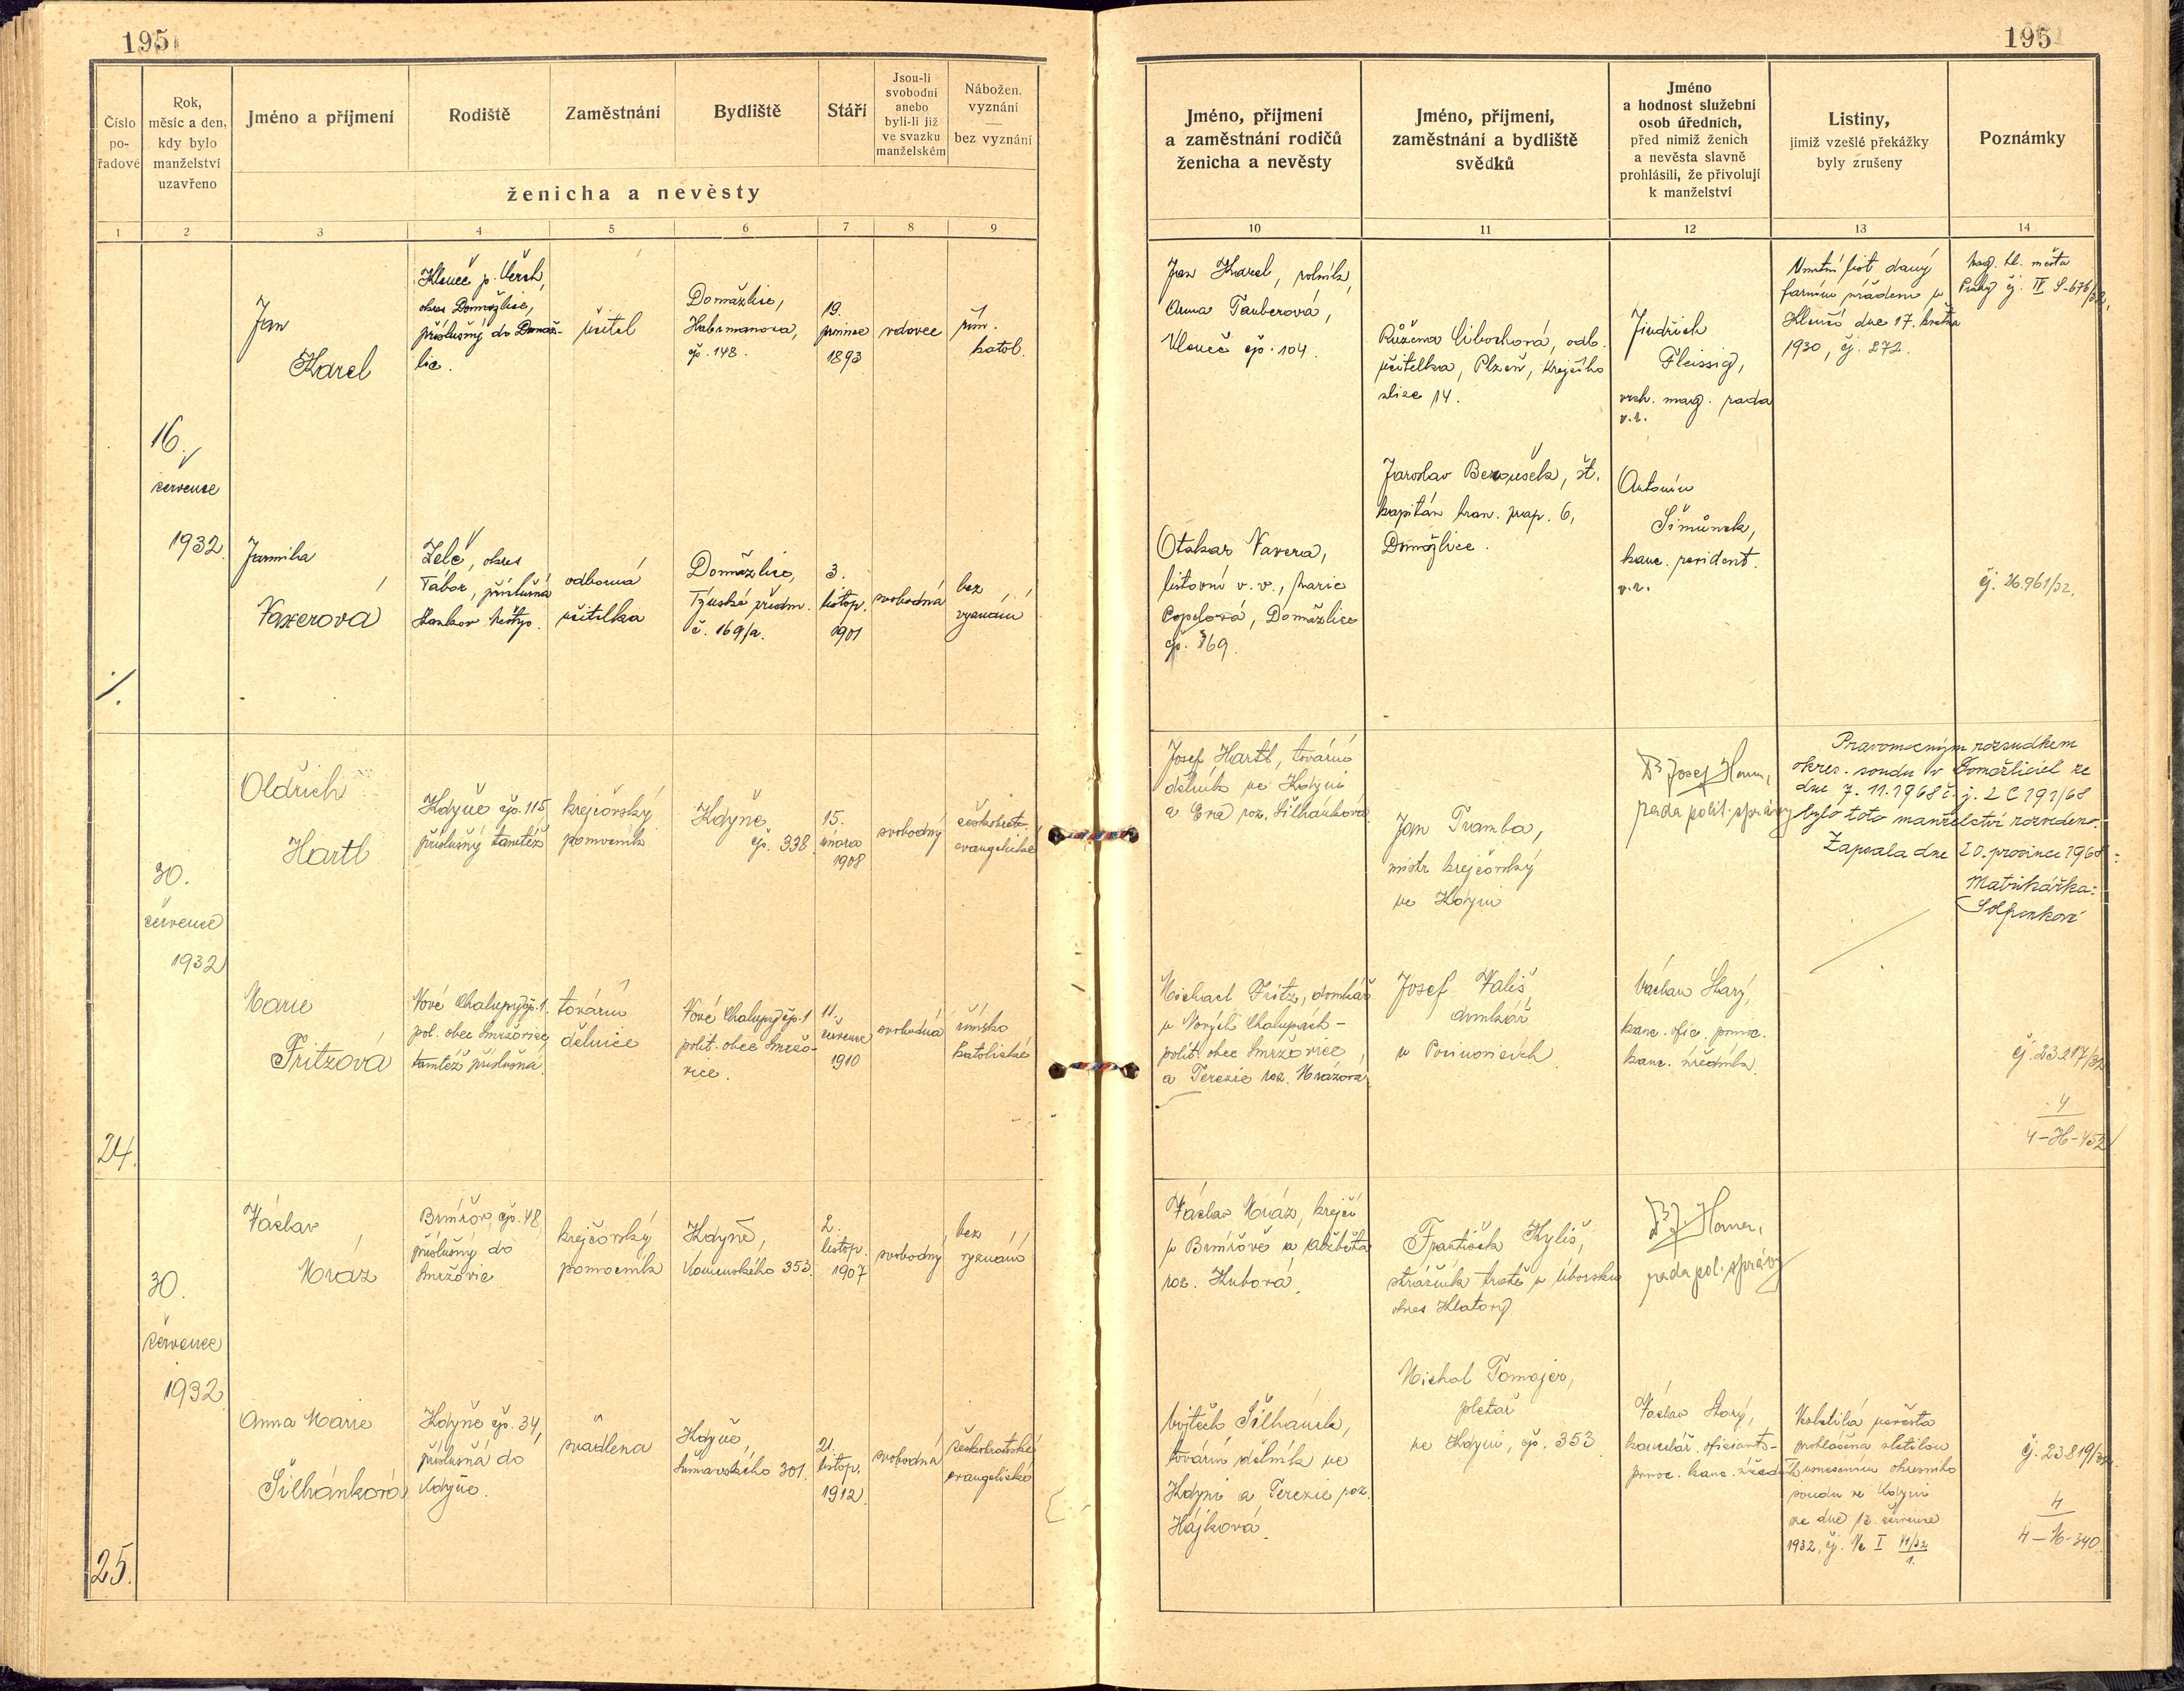 195
195
Číslo
po-
řadové
Rok,
měsíc a den,
kdy bylo
manželství
uzavřeno
Jméno a příjmení
Rodiště
Zaměstnání
Bydliště
Stáří
Jsou-li
svobodni
anebo
byli-li již
ve svazku
manželském
Nábožen.
vyznání
—
bez vyznání
ženicha a nevěsty
1 2 3 4 5 6 7 8 9
Jméno, příjmení
a zaměstnání rodičů
ženicha a nevěsty
Jméno, příjmení,
zaměstnání a bydliště
svědků
Jméno
a hodnost služební
osob úředních,
před nimiž ženich
a nevěsta slavně
prohlásili, že přivolují
k manželství
Listiny,
jimiž vzešlé překážky
byly zrušeny
Poznámky
10 11 12 13 14
16.
července
1932.
Jan
Karel
Kleneč p. Čerch.,
okres Domažlice,
příslušný do Domaž-
lic.
učitel
Domažlice,
Habrmanova,
čp. 148.
19.
prosince
1893
vdovec
řím.
katol.
Jan Karel, rolník,
Anna Tauberová,
Kleneč čp. 104.
Růžena Cibochová, odb.
učitelka, Plzeň, Krejčího
ulice 14.
Jindřich
Fleissig,
vrch. mag. rada
v.r.
Úmrtní list daný
farním úřadem v
Klenčí dne 17. května
1930, čj. 272.
Mag. hl. města
Prahy čj. IV S-676/32.
Jarmila
Vaverová
Želč, okres
Tábor, příslušná
odborná
učitelka
Domažlice,
Týnské předm.
č. 169/a.
3.
listop.
1901
svobodná
bez
vyznání
Otakar Vavera,
listovní v. v., Marie
Copelová, Domažlice
čp. 169.
Jaroslav Beroušek, št.
kapitán hran. prap. 6,
Domažlice.
Antonín
Šimůnek,
kanc.
v.r.
čj. 26.961/32.
./.
30.
července
1932
Oldřich
Hartl
Kdyně čp. 115,
příslušný tamtéž
krejčovský
pomocník
Kdyně
čp. 338
15.
února
1908
svobodný
českobrat.
evangelické
Josef Hartl, tovární
dělník ve Kdyni
a Eva roz. Šilhánková
Jan Tramba,
mistr krejčovský
ve Kdyni
Dr Josef Haner,
rada polit. správy
Pravomocným rozsudkem
okres. soudu v Domažlicích ze
dne 7. 11. 1968 č. j. 2 C 191/68
bylo toto manželství rozvedeno.
Zapsala dne 20. prosince 1968:
Matrikářka:
Marie
Fritzová
Nové Chalupy čp. 1.
pol. obec Smržovice,
tamtéž příslušná.
tovární
dělnice
Nové Chalupy čp. 1
polit. obec Smržo-
vice.
11.
července
1910
svobodná
římsko
katolické
Michael Fritz, domkář
v Nových Chalupách -
polit. obec Smržovice,
a Terezie roz. Mrázová.
Josef Vališ
domkář
v Pocinovicích
Václav Starý,
kanc. ofic. pomoc.
kanc. úředník.
čj. 23.217/32
4
4-H-452
24.
30.
července
1932
Václav
Mráz
Brnířov, čp. 48,
příslušný do
Smržovic
krejčovský
pomocník
Kdyně,
Komenského 353.
2.
listop.
1907
svobodný
bez
vyznání
Václav Mráz, krejčí
v Brnířově a Alžběta
roz. Kubová.
František Kyliš,
strážník trati v Úborsku
okres Klatovy
Dr J Haner,
rada pol. správy
Anna Marie
Šilhánková
Kdyně čp. 34,
příslušná do
Kdyně.
švadlena
Kdyně,
Šumavského 301.
21.
listop.
1912.
svobodná
českobratrské
evangelické
Vojtěch Šilhánek,
tovární dělník ve
Kdyni a Terezie roz.
Hájková.
Michal Tomajer,
pletař
ve Kdyni, čp. 353
Václav Starý,
kancelář. oficiant-
pomoc. kanc. úředník
Nezletilá nevěsta
prohlášena zletilou
usnesením okresního
soudu ve Kdyni
ze dne 12. července
1932, čj. Nc I 41/32
1.
čj. 23819/32.
4
4-M-340.
25.